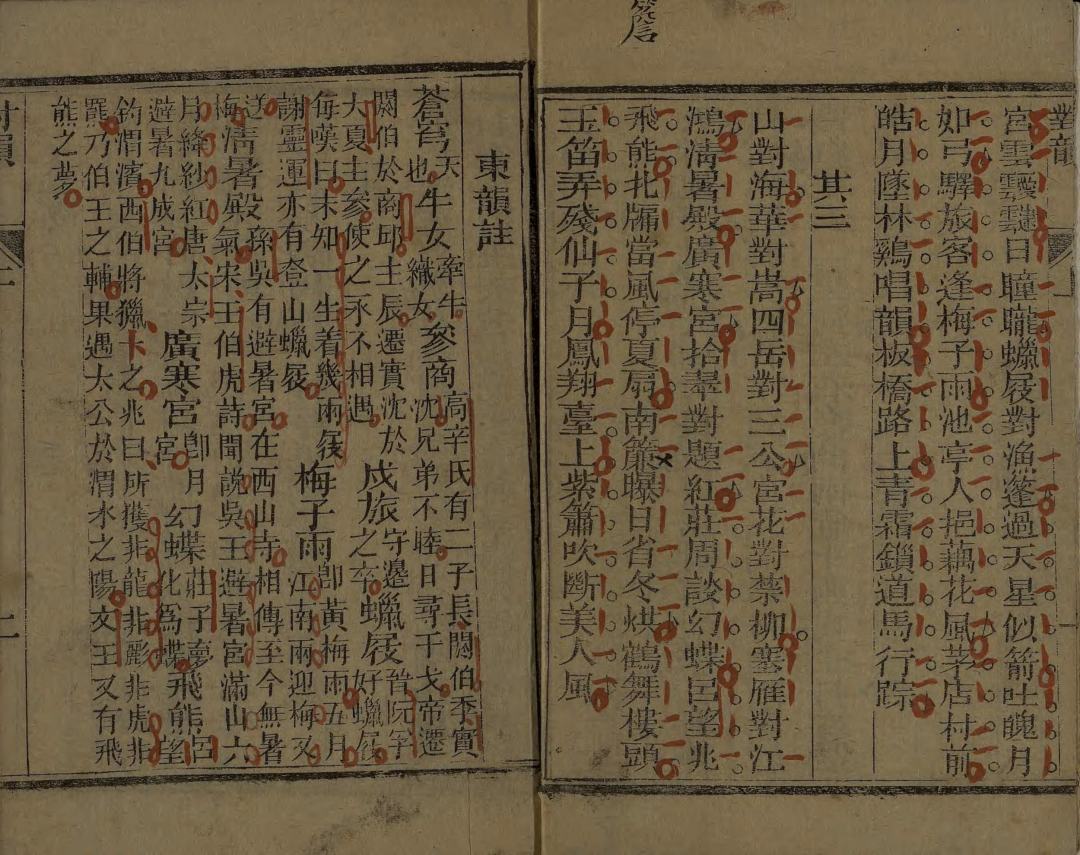 宮雲靉靆日曈曨蠟屐對漁蓬過天星似箭吐魄月
如弓驛旅客逢梅子雨池亭人挹藕花風茅店村前
皓月墜林雞唱韻板橋路上青霜鎖道馬行踪
其三
山對海華對嵩四岳對三公宮花對禁柳塞雁對江
鴻淸暑殿廣寒宮拾翠對題紅莊周談幻蝶呂望兆
飛熊北牖當風停夏扇南簾曝日省冬烘鶴舞樓頭
玉笛弄殘仙子月鳳翔臺上紫簫吹斷美人風
東韻註
蒼穹天也牛女牽牛織女參商高辛氏有二子長閼伯季實
沈兄弟不睦日尋干戈帝遷
閼伯於商邱主辰遷實沈於
大夏主參使之永不相遇戍旅守邊之卒蠟屐晉阮孚好蠟屐
每嘆曰未知一生着幾兩屐
謝靈運亦有登山蠟屐梅子雨卽黃梅雨五月江南雨迎梅又
送梅淸暑殿孫吳有避暑宮在西山寺相傳至今無暑
氣宋王伯虎詩聞說吳王避暑宮滿山六
月絳紗紅唐太宗
避暑九成宮廣寒宮卽月宮幻蝶莊子夢化爲蝶飛熊呂望
釣渭濱西伯將獵卜之兆曰所獲非龍非彲非虎非
羆乃伯王之輔果遇太公於渭水之陽文王又有飛
熊之夢